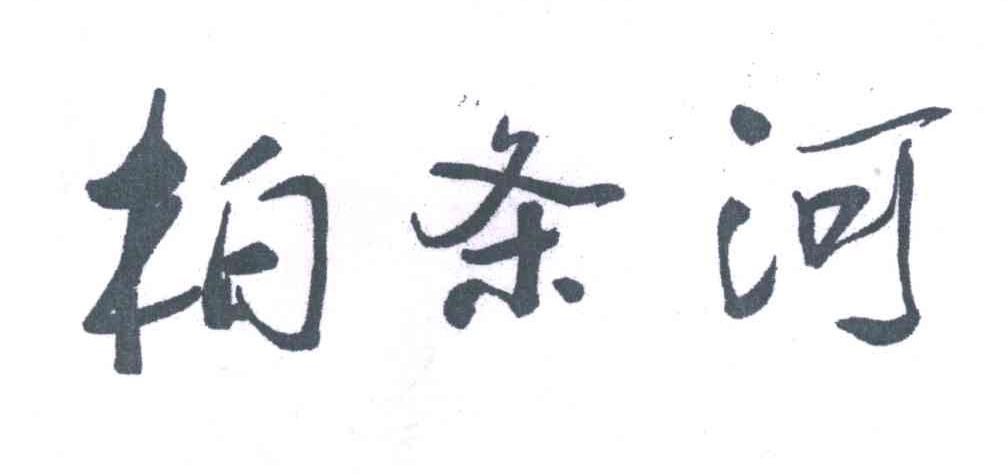 柏条河